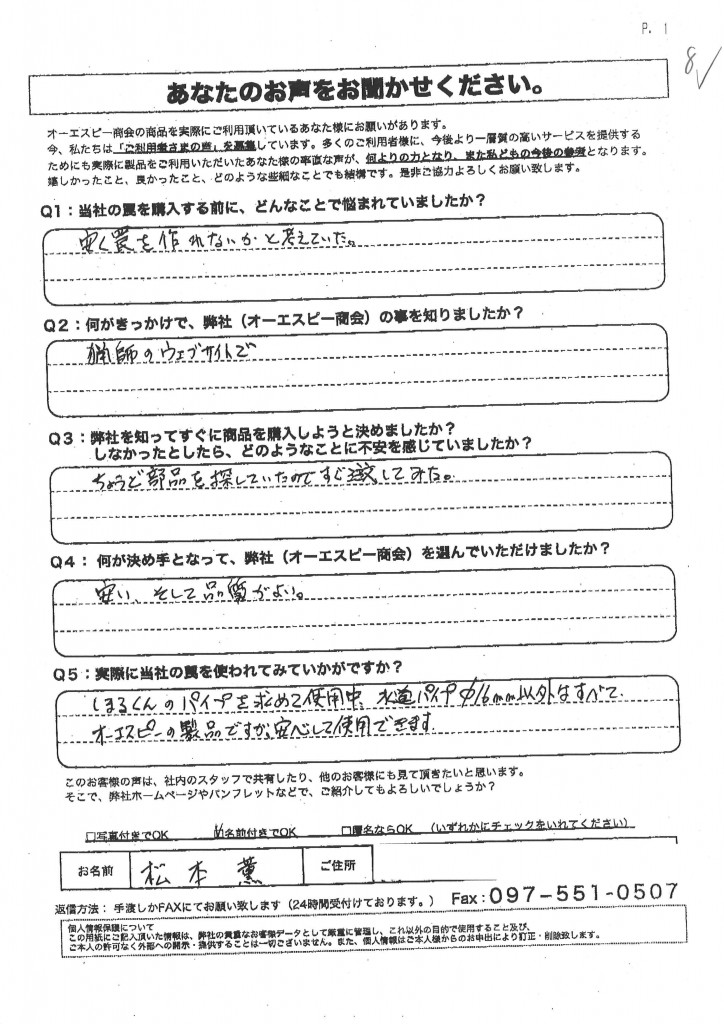 P. 1
8✓
あなたのお声をお聞かせください。
オーエスピー商会の商品を実際にご利用頂いているあなた様にお願いがあります。
今、私たちは「ご利用者さまの声」を募集しています。多くのご利用者様に、今後より一層質の高いサービスを提供する
ためにも実際に製品をご利用いただいたあなた様の率直な声が、何よりの力となり、また私どもの今後の参考となります。
嬉しかったこと、良かったこと、どのような些細なことでも結構です。是非ご協力よろしくお願い致します。
Q1：当社の罠を購入する前に、どんなことで悩まれていましたか？
安く罠を作れないかと考えていた。
Q2：何がきっかけで、弊社（オーエスピー商会）の事を知りましたか？
猟師のウェブサイトで
Q3：弊社を知ってすぐに商品を購入しようと決めましたか？
しなかったとしたら、どのようなことに不安を感じていましたか？
ちょうど部品を探していたのですぐ注文してみた。
Q4：何が決め手となって、弊社（オーエスピー商会）を選んでいただけましたか？
安い、そして品質がよい。
Q5：実際に当社の罠を使われてみていかがですか？
しまるくんのパイプを求めて使用中、水道パイプφ16mm以外はすべて
オーエスピーの製品ですが、安心して使用できます
このお客様の声は、社内のスタッフで共有したり、他のお客様にも見て頂きたいと思います。
そこで、弊社ホームページやパンフレットなどで、ご紹介してもよろしいでしょうか？
□写真付きでOK ☑名前付きでOK □匿名ならOK （いずれかにチェックをいれてください）
お名前 松本薫 ご住所
返信方法：手渡しかFAXにてお願い致します（24時間受付けております。） Fax：097-551-0507
個人情報保護について
この用紙にご記入頂いた情報は、弊社の貴重なお客様データとして厳重に管理し、これ以外の目的で使用すること及び、
ご本人の許可なく外部への開示・提供することは一切ございません。また、個人情報はご本人様からのお申出により訂正・削除致します。